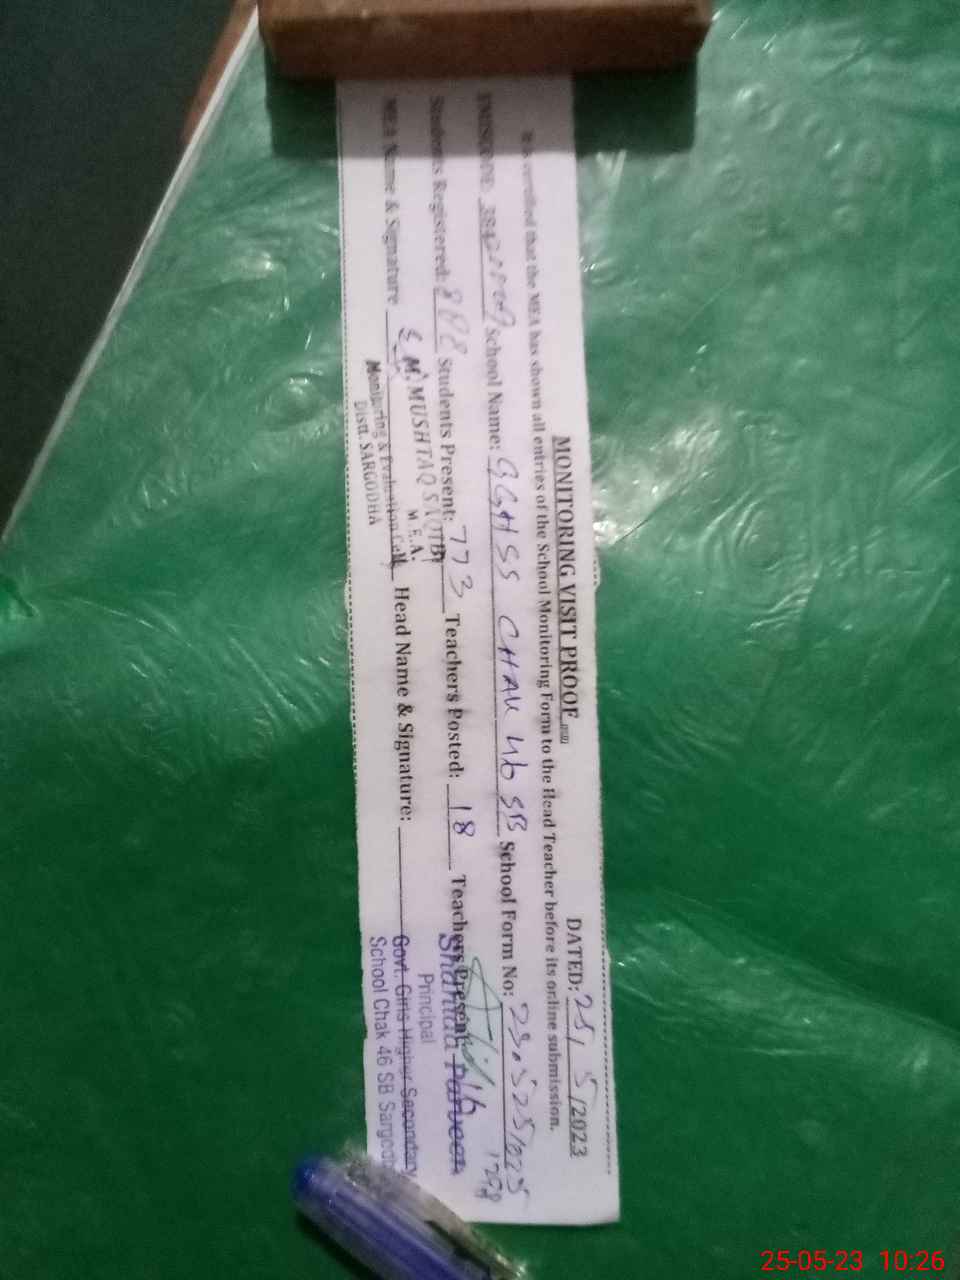 MONITORING VISIT PROOF
DATED: 25/ 5 /2023
It is certified that the MEA has shown all entries of the School Monitoring Form to the Head Teacher before its online submission.
EMISCODE: School Name: GGHSS CHAK 46 SB School Form No:
Students Registered: 888 Students Present: 773 Teachers Posted: 18 Teachers Present: 16
MEA Name & Signature Head Name & Signature:
M. MUSHTAQ
M.E.A.
Monitoring & Evaluation Cell
Distt. SARGODHA
Shahida Parveen
Principal
Govt. Girls Higher Secondary
School Chak 46 SB Sargodha
25-05-23 10:26